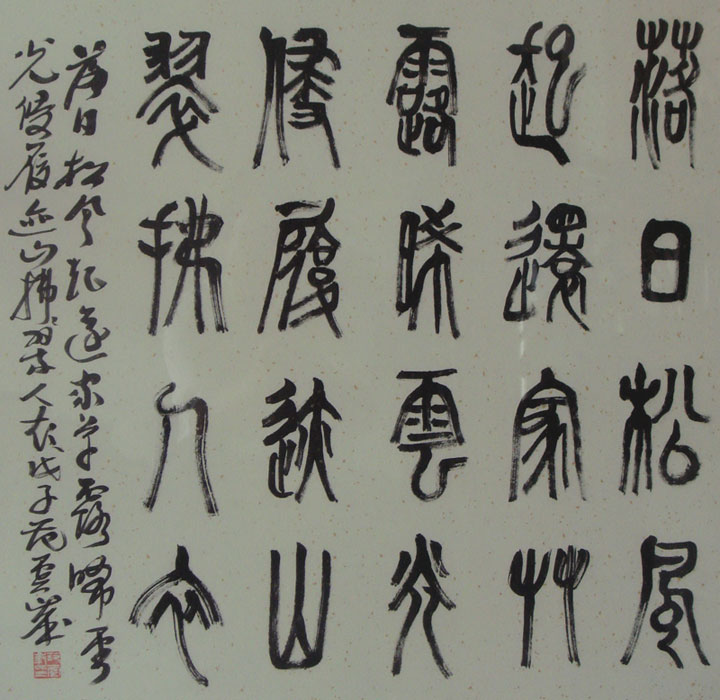 落日松風
起還家艸
露晞雲光
侵履迹山
翠拂人衣
落日松风起還家草露晞雲
光侵履迹山拂翠人衣戊子